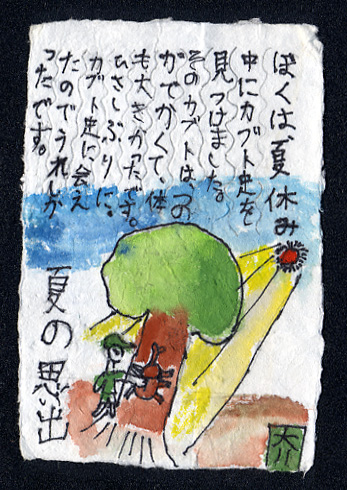 ぼくは、夏休み
中にカブト虫を
見つけました。
そのカブトは、つの
がでかくて、体
も大きかったです。
ひさしぶりに、
カブト虫に、会え
たのでうれしか
ったです。
夏の思出
大介